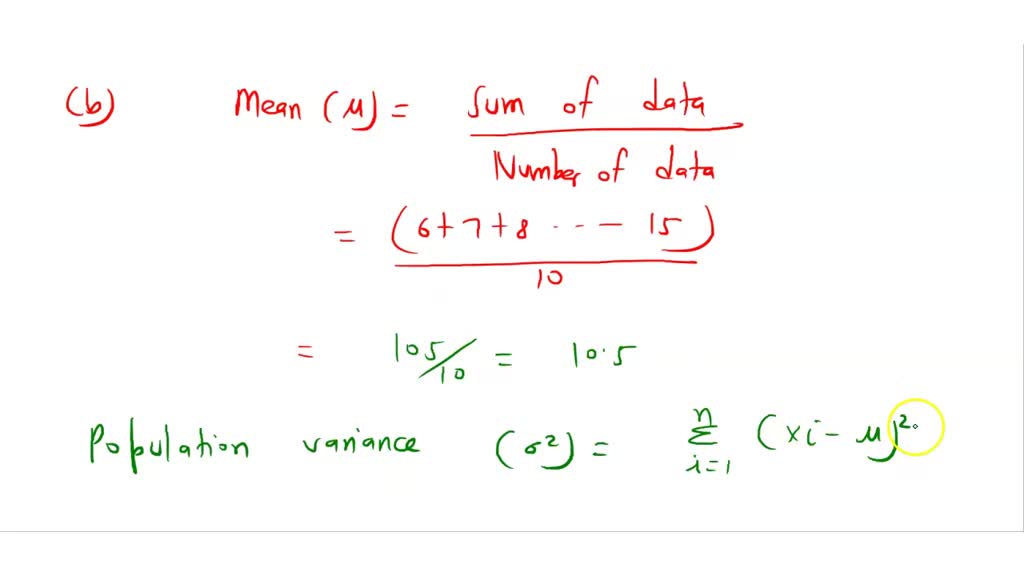 (b) Mean (μ) = Sum of data
Number of data
= (6+7+8 ... – 15)
10
= 105/10 = 10.5
Population variance (σ²) = n Σ i=1 (xi – μ)²